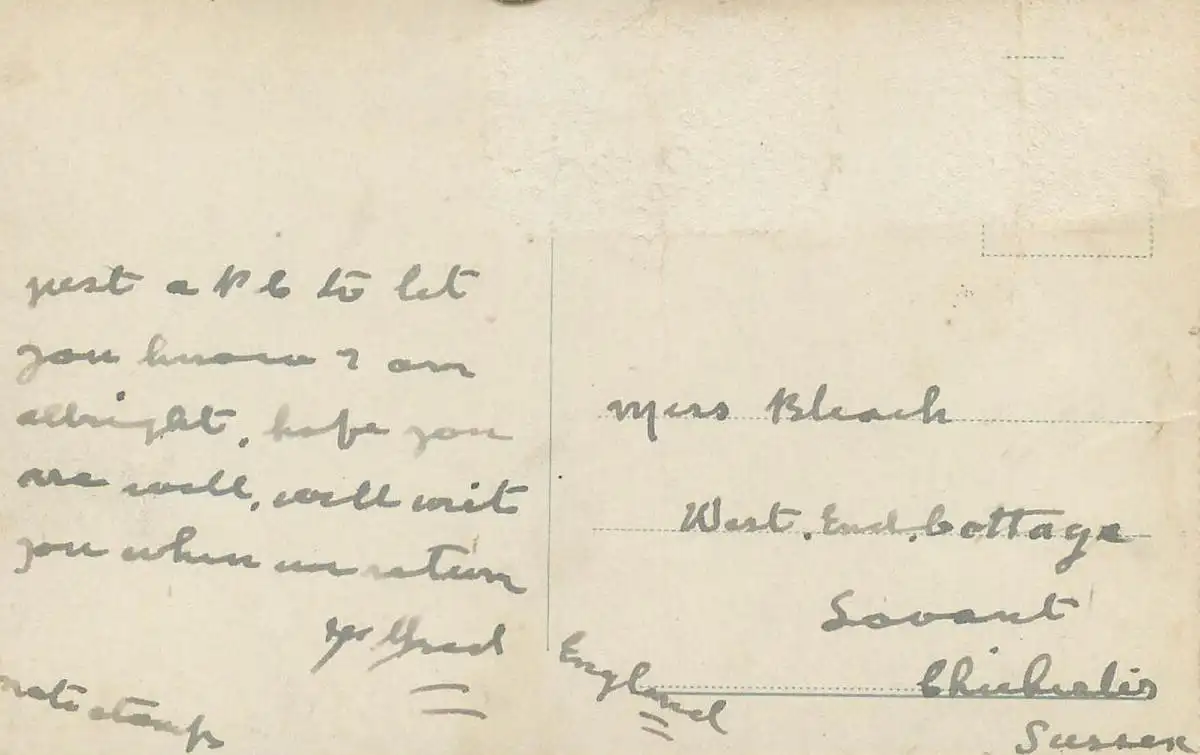 just a P C to let
you know I am
allright, hope you
are well, will writ
you when we return
yr Fred
note stamp
Miss Bleach
West. End. Cottage
Lavant
Chichester
Sussex
England